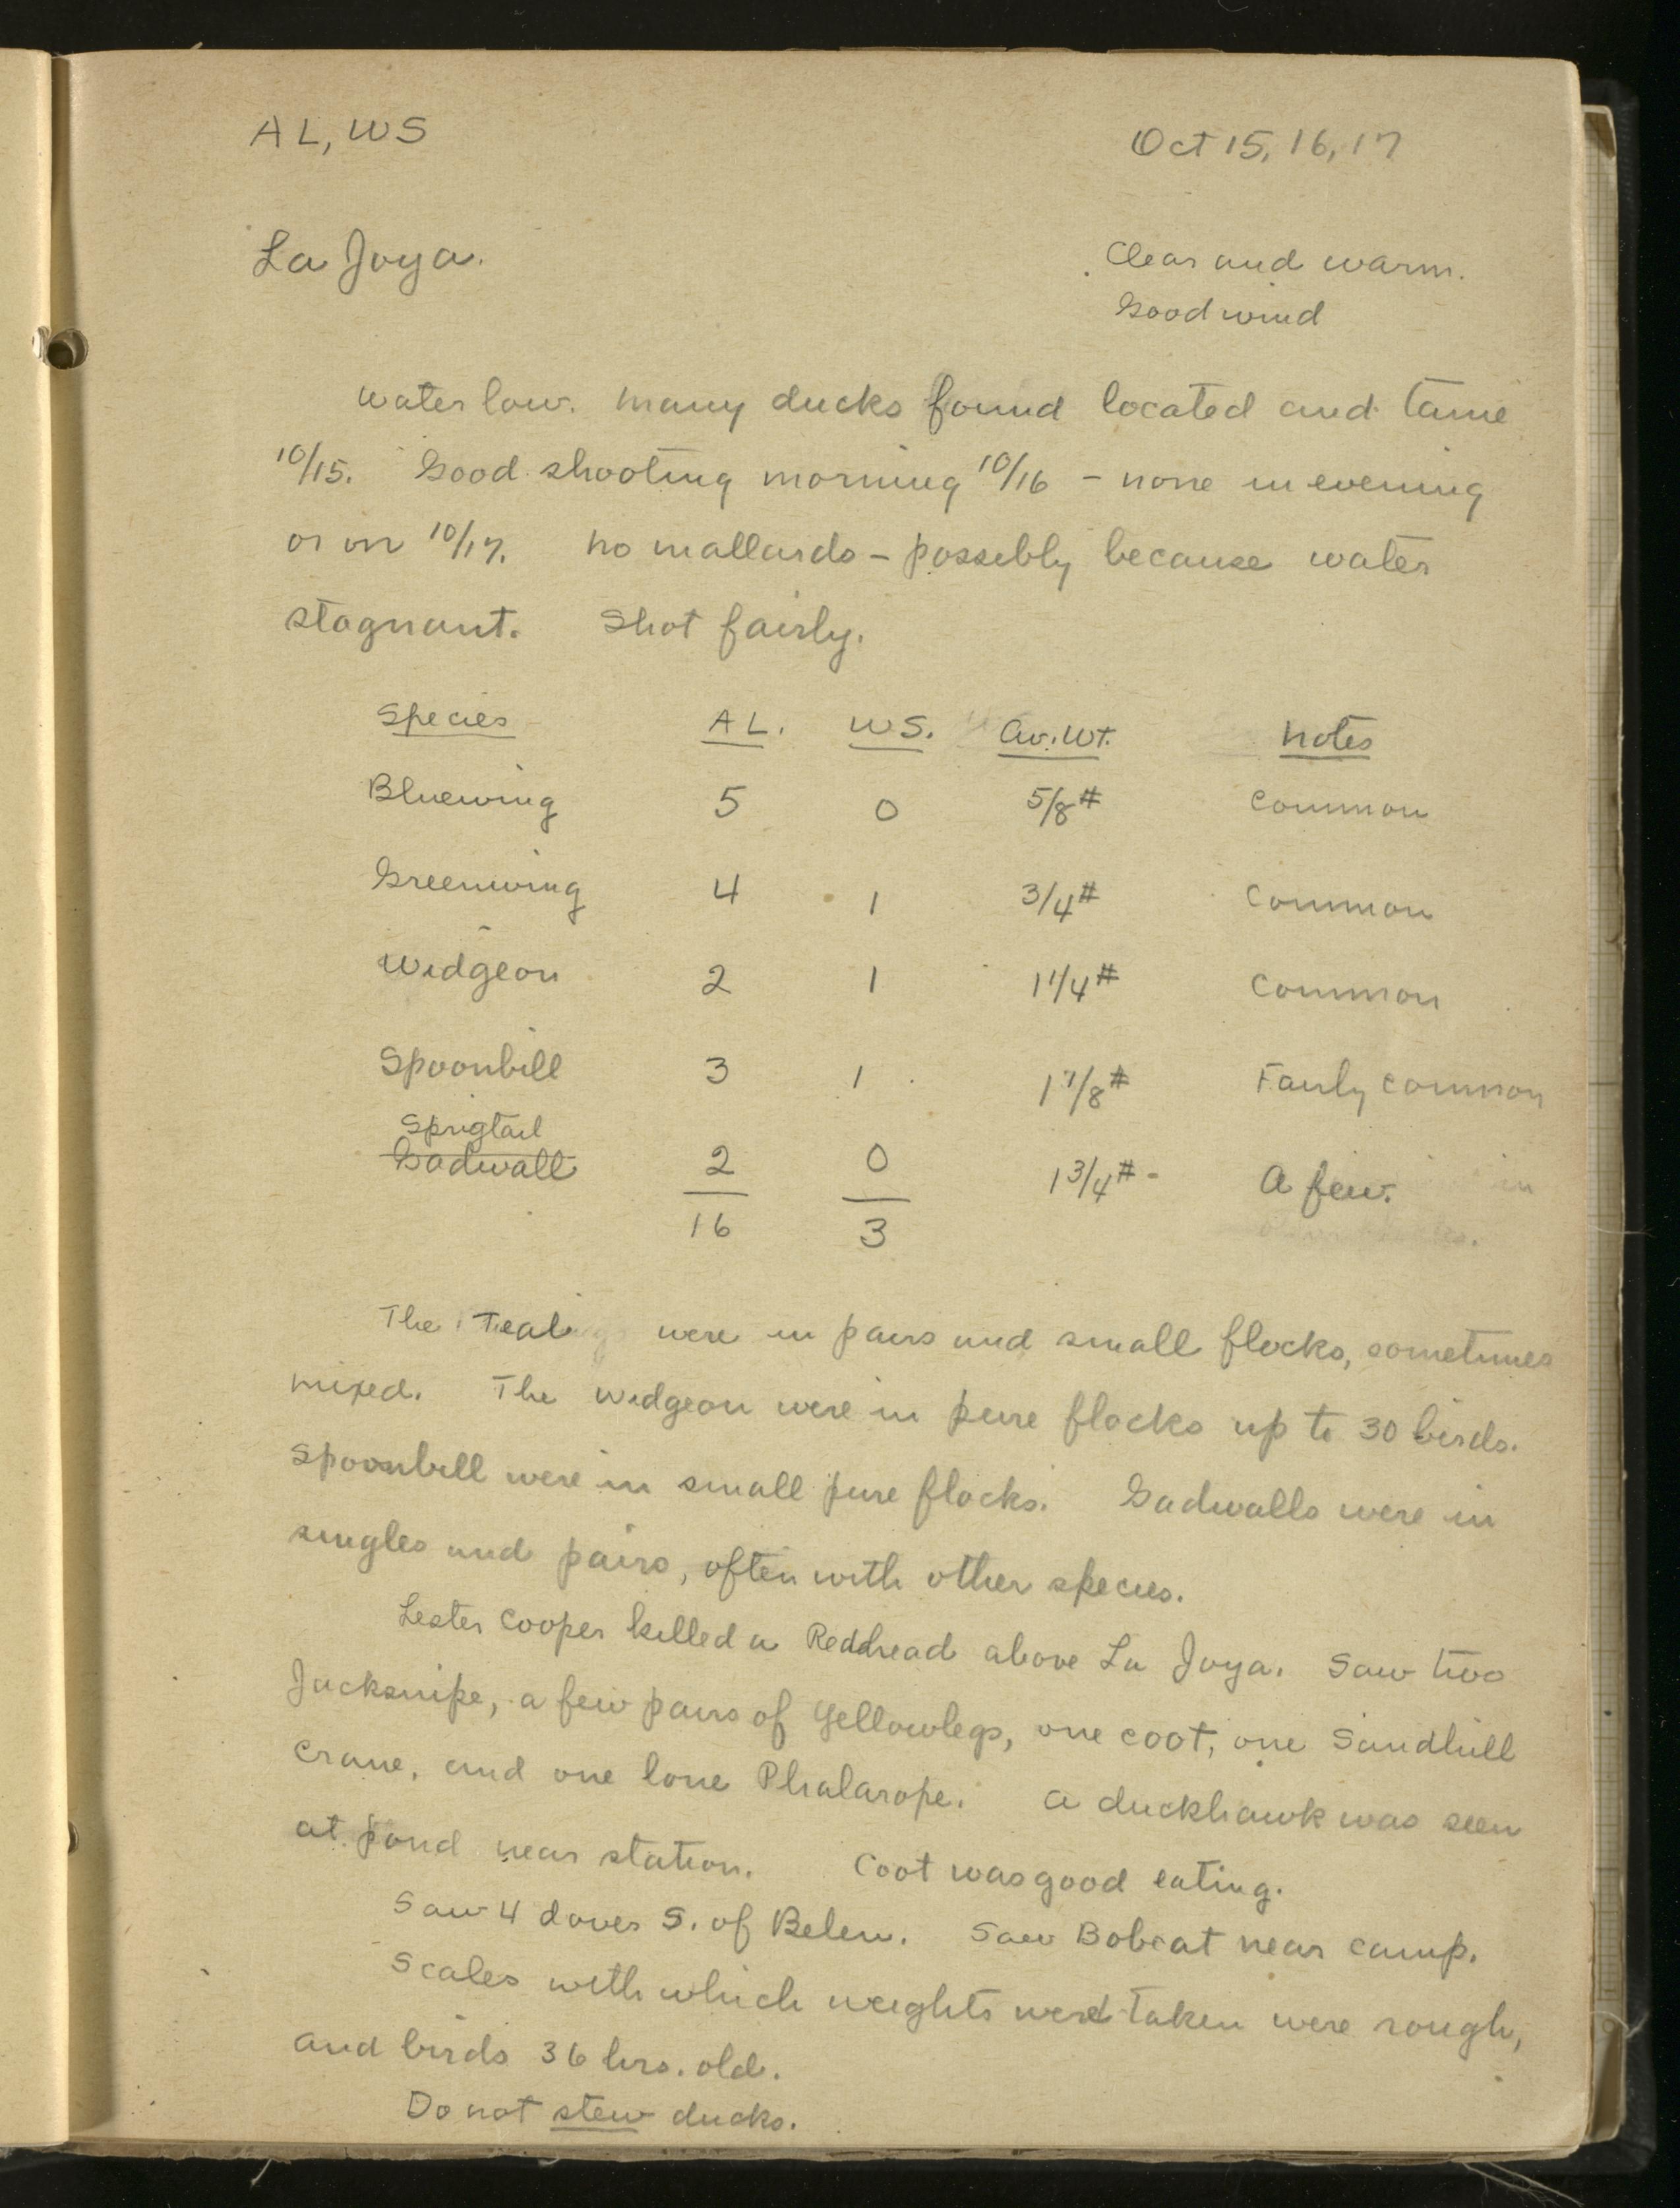 AL, WS Oct 15, 16, 17
La Joya. Clear and warm.
Good wind
Water low. Many ducks found located and tame
10/15. Good shooting morning 10/16 – none in evening
or on 10/17. No mallards – possibly because water
stagnant. Shot fairly.
Species AL. WS. Av. Wt. Notes
Bluewing 5 0 5/8# Common
Greenwing 4 1 3/4# Common
Widgeon 2 1 1 1/4# Common
Spoonbill 3 1 1 7/8# Fairly common
Sprigtail
Gadwall 2 0 1 3/4# - A few.
16 3
The Teal were in pairs and small flocks, sometimes
mixed. The widgeon were in pure flocks up to 30 birds.
Spoonbill were in small pure flocks. Gadwalls were in
singles and pairs, often with other species.
Lester Cooper killed a Redhead above La Joya. Saw two
Jacksnipe, a few pairs of Yellowlegs, one coot, one Sandhill
Crane, and one lone Phalarope. A duckhawk was seen
at pond near station. Coot was good eating.
Saw 4 doves S. of Belen. Saw Bobcat near camp.
Scales with which weights were taken were rough,
and birds 36 hrs. old.
Do not stew ducks.